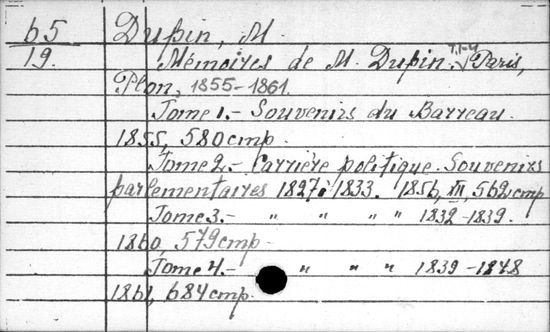 65 Dupin, M.
19. Mémoires de M. Dupin. T.1-4 Paris,
Plon, 1855-1861.
Tome 1.- Souvenirs du Barreau.
1855, 580 стр.
Tome 2.- Carrière politique. Souvenirs
parlementaires 1827 à 1833. 1856, III, 562 стр
Tome 3.- " " " " 1832-1839.
1860, 579 стр.
Tome 4.- " " " 1839-1848
1861, 684 стр.